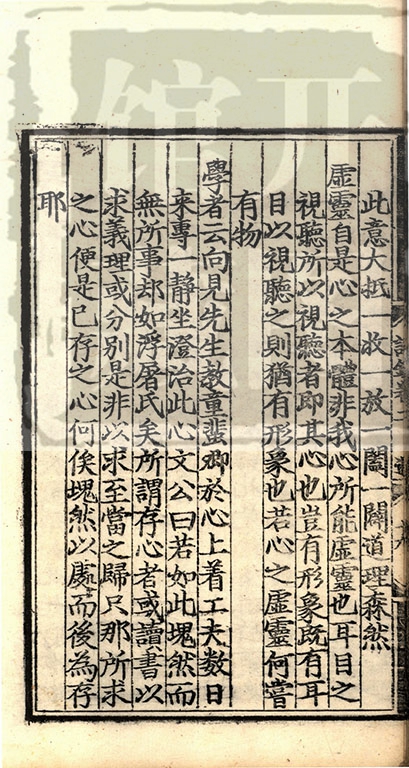 此意大抵一收一放一闔一闢道理森然
虛靈自是心之本體非我心所能虛靈也耳目之
視聽所以視聽者即其心也豈有形象既有耳
目以視聽之則猶有形象也若心之虛靈何嘗
有物
學者云向見先生教童蜚卿於心上着工夫數日
來專一靜坐澄治此心文公曰若如此塊然而
無所事却如浮屠氏矣所謂存心者或讀書以
求義理或分別是非以求至當之歸只那所求
之心便是已存之心何俟塊然以處而後為存
耶